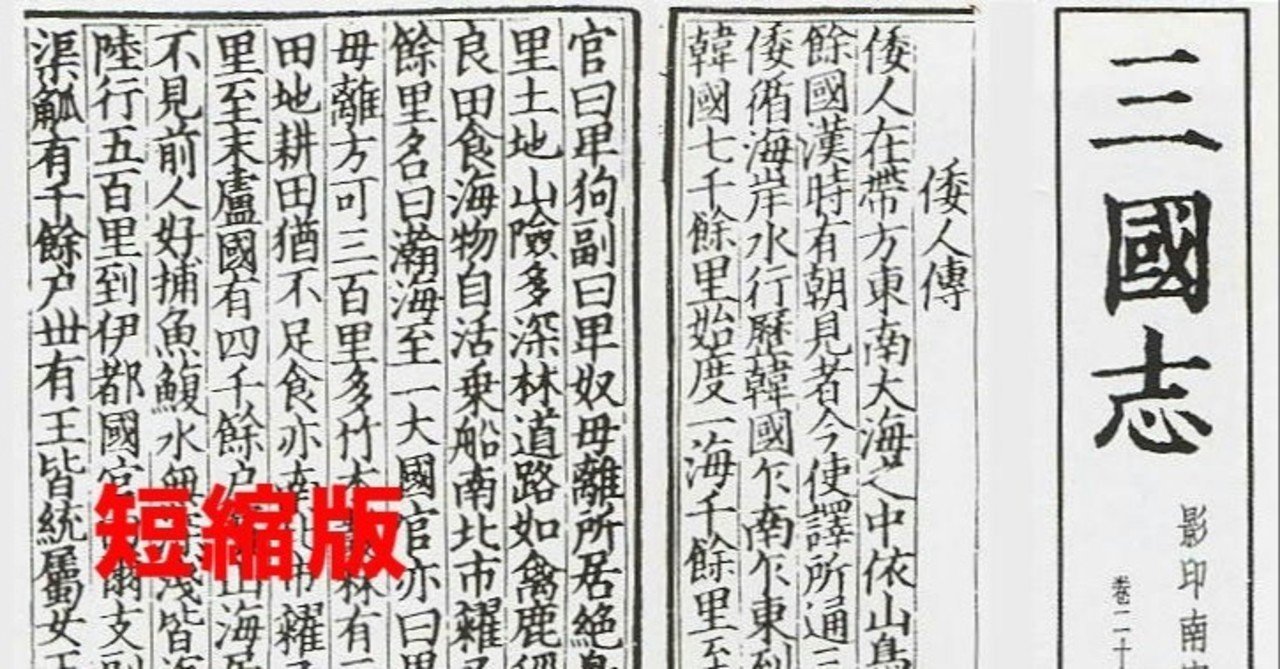 三國志
影印南
卷二十
倭人傳
倭人在帶方東南大海之中依山島
餘國漢時有朝見者今使譯所通三
倭循海岸水行歷韓國乍南乍東到
韓國七千餘里始度一海千餘里至
官曰卑狗副曰卑奴毋離所居絶島
里土地山險多深林道路如禽鹿徑
良田食海物自活乗船南北市糴
餘里名曰瀚海至一大國官亦曰卑
毋離方可三百里多竹木林有三
田地耕田猶不足食亦南北市糴
里至末盧國有四千餘户山海居
不見前人好捕魚鰒水無淺皆
陸行五百里到伊都國官爾支副
渠觚有千餘户丗有王皆統屬女王
短縮版